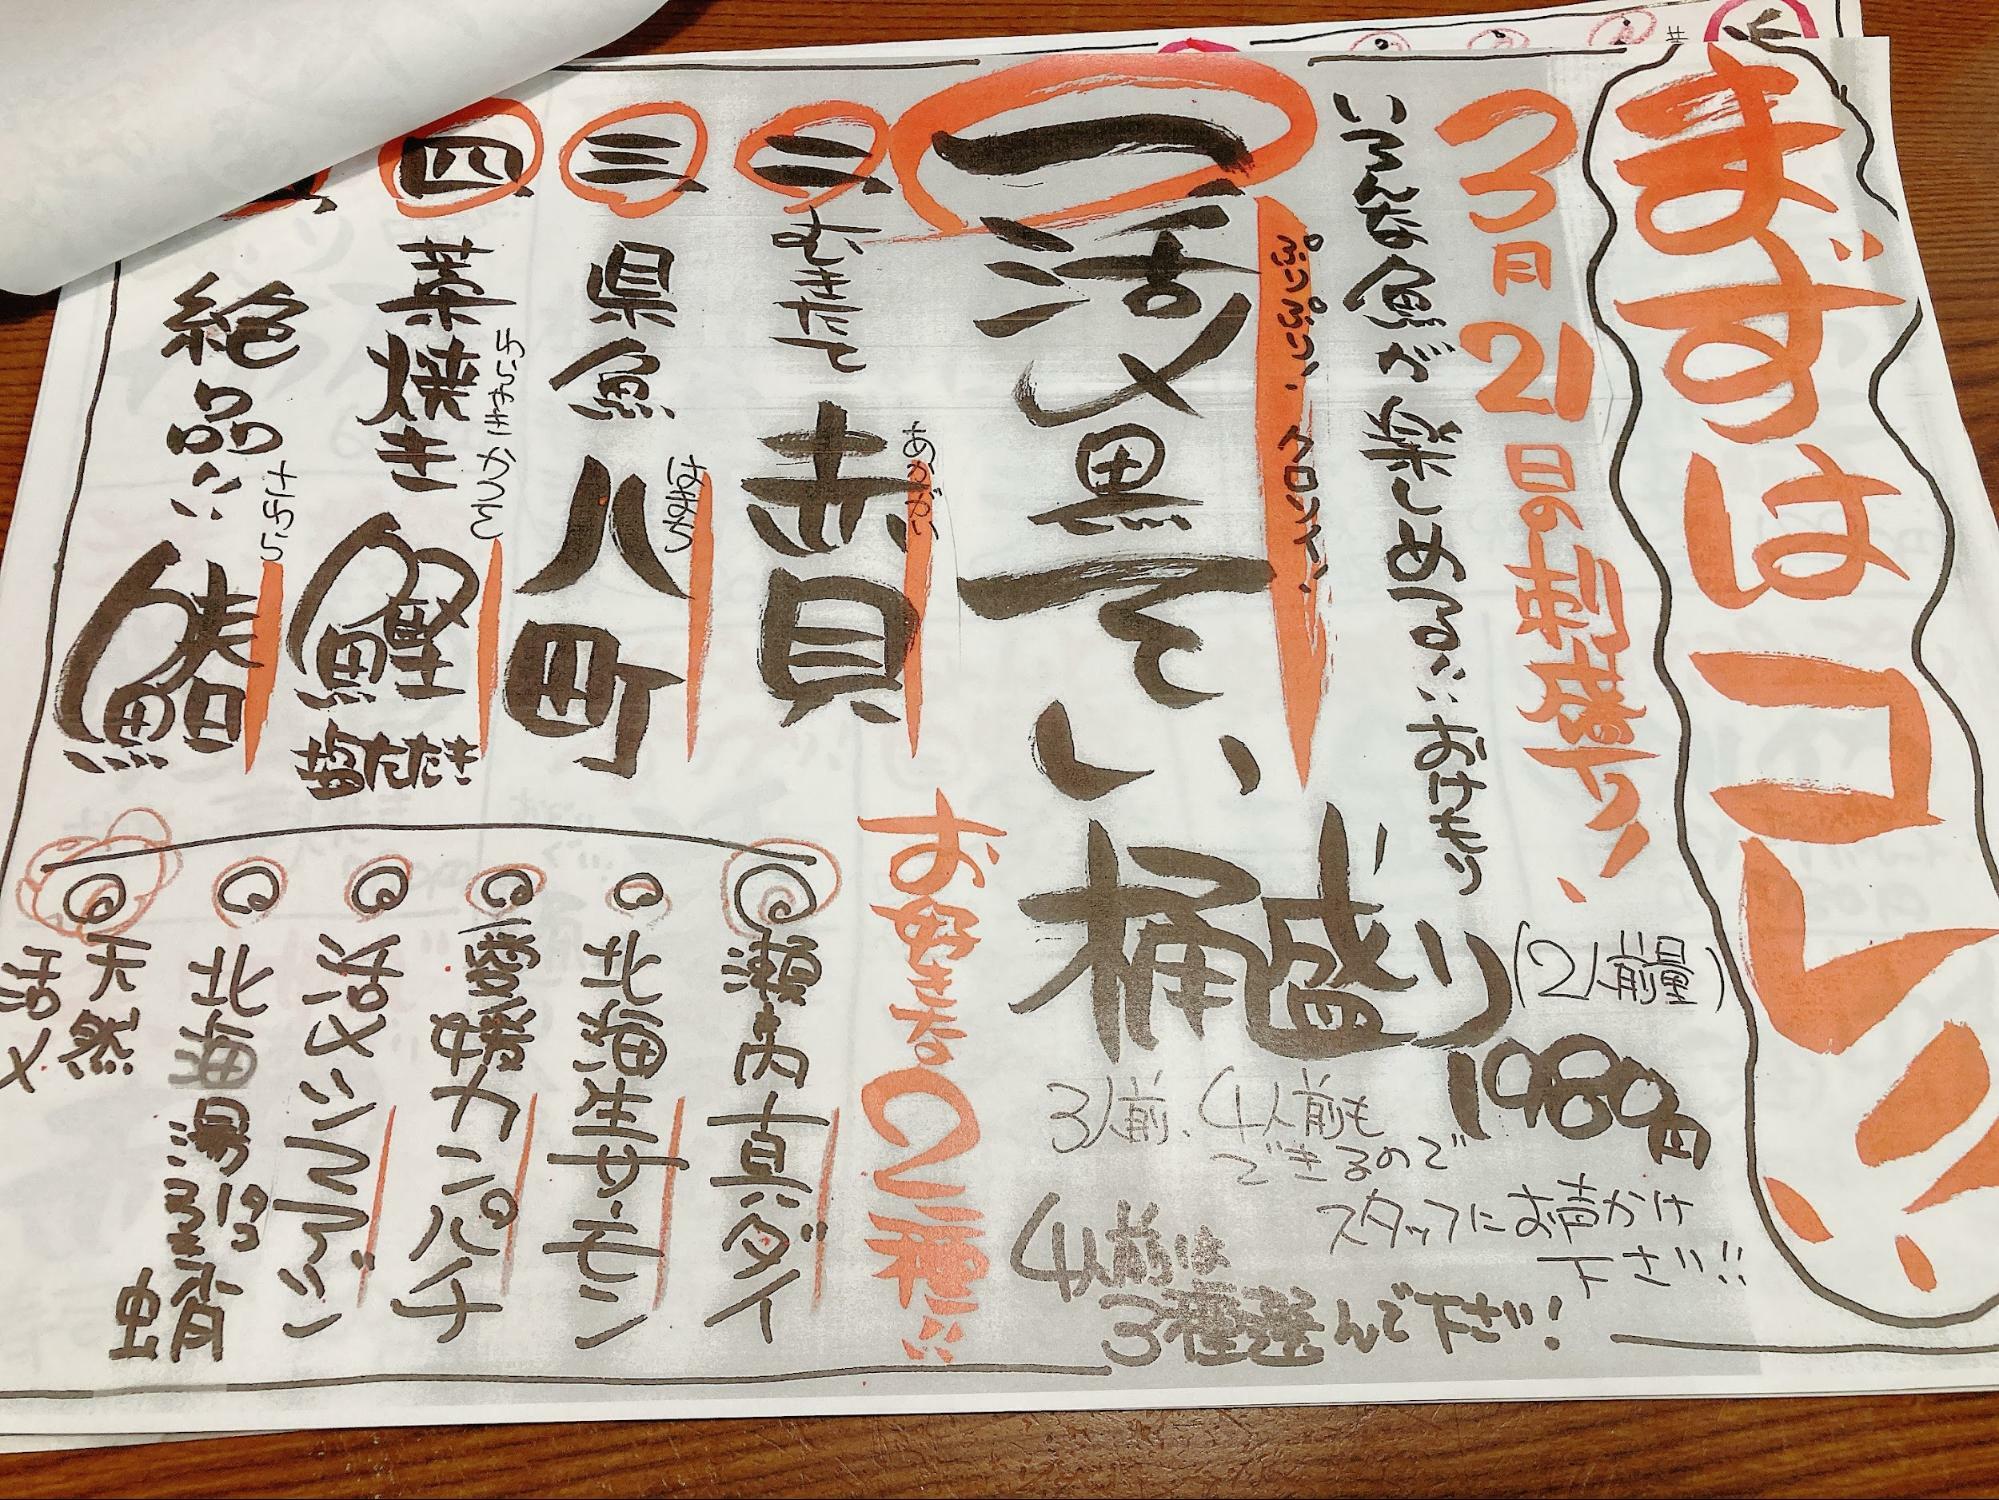 まずはコレッ!!
3月21日の刺盛り!
いろんな魚が楽しめる!!おけもり
ぷりぷり!クロソイ!
一 活〆黒そい桶盛り(2人前量)
1980円
3人前、4人前も
できるので
スタッフにお声かけ
下さい!!
4人前は
3種選んで下さい!
二 むきたて 赤貝
あかがい
三 県魚 八町
はまち
四 藁焼き 鰹塩たたき
わらやきかつお
絶品!! 鰆
さわら
お好きな2種!!
瀬戸内真ダイ
北海生サーモン
愛媛カンパチ
活〆シマアジ
北海湯引蛸
天然
活〆